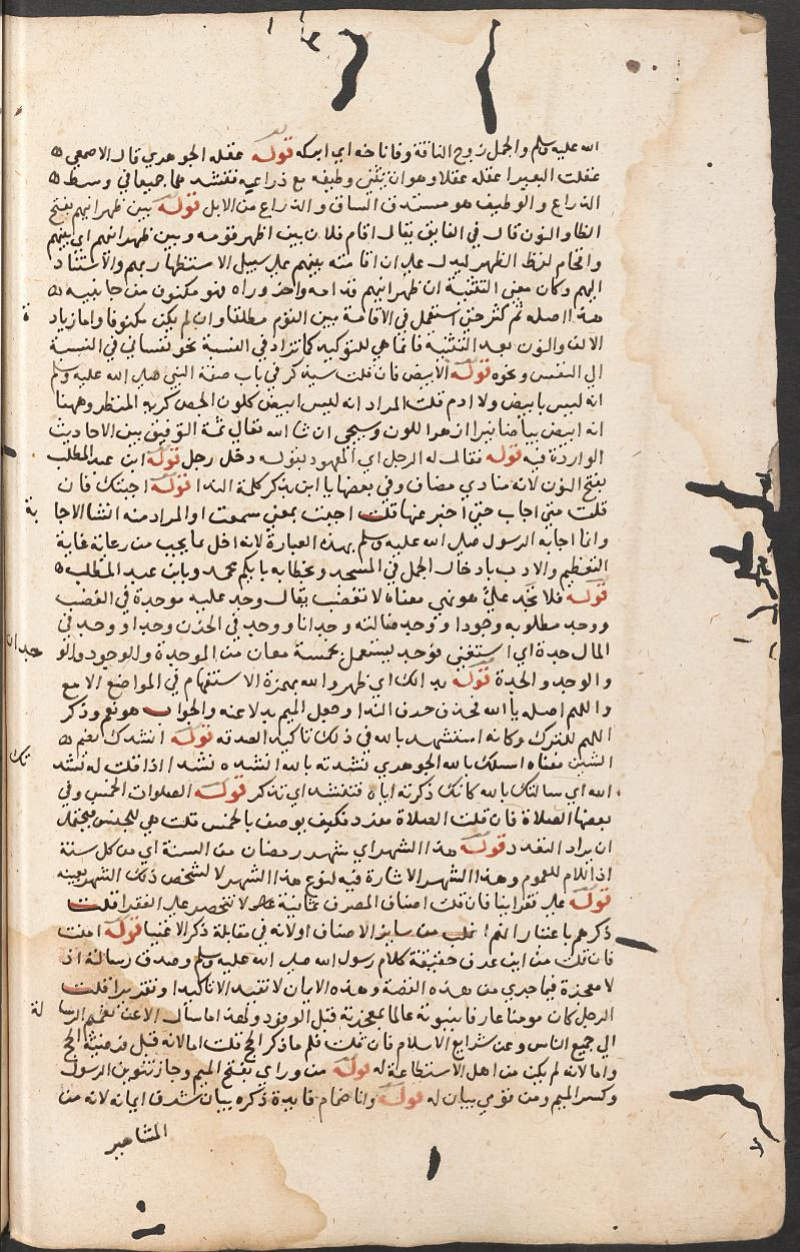 الله عليه وسلم والجمل زوج الناقة وفاناخه اي ابركه قوله عقله الجوهدي قال الاصمعي
عقلت البعير اعقله عقلا وهو ان يثني وطيفه مع ذراعيه فتشد هما جميعا في وسط
الذراع والوطيف هو مستدق الساق والذراع من الابل قوله بين ظهرانيهم بفتح
الظا والنون قال في الفايق يقال اقام فلان بين اظهر قومه وبين ظهرانيهم اي بينهم
واقحام لفظ الظهر ليدل على ان اقامته بينهم على سبيل الاستظهار بهم والاستناد
اليهم وكان معني التثنية ان ظهرا منهم قدامه واخر وراه فهو مكنون من جانبيه
هذا اصله ثم كثر حتى استعمل في الاقامة بين القوم مطلقا وان لم يكن مكنوفا واما زياد
ة
الالف والنون بعد التثنية فانما هي للتوكيد كما تزاد في النسبة نحو نفساني في النسبة
الى النفس ونحوه قوله الابيض فان قلت سيذكر في باب صفة النبي صلى الله عليه وسلم
انه ليس بابيض ولا ادم قلت المراد انه ليس ابيض كلون الجص كريه المنظر وههنا
انه ابيض بياضا نيرا ازهر اللون وسيجي ان شا الله تعالى ثمة التوفيق بين الاحاديث
الواردة فيه قوله فقال له الرجل اي المعهود بقوله دخل رجل قوله ابن عبد المطلب
بفتح النون لانه منادي مضاف وفي بعضها يا ابن بذكر كلمة الندا قوله اجبتك فان
قلت متى اجاب حتى اخبر عنها قلت اجبت بمعني سمعت او المراد منه انشا الاجا
بة
وانا اجابه الرسول صلى الله عليه وسلم بهذه العبارة لانه اخل بما يجب من رعاية غاية
التعظيم والادب بادخال الجمل في المسجد وبخطابه بايكم محمد وبابن عبد المطلب
قوله فلا تجد علي هو نهي معناه لا تغضب يقال وجد عليه موجدة في الغضب
ووجد مطلوبه وجودا ووجد ضالته وجدانا ووجد في الحزن وجدا ووجد في
المال جدة اي استغني فوجد يستعمل بخمسة معان من الموجدة والوجود والو
جدان
والوجد والجدة قوله بدا لك اي ظهر والله بهمزة الاستفهام في المواضع الاربع
واللهم اصله يا الله فحذف حرف الندا وجعل الميم بدلا عنه والجواب هو نعم وذكر
اللهم للتبرك وكانه استشهد بالله في ذلك تاكيدا لصدقه قوله انشدك بضم
الشين معناه اسلك بالله الجوهدي نشدته بالله انشده نشدا اذا قلت له نشد
تك
الله اي سالتك بالله كانك ذكرته اياه فتنشد اي تذكر قوله الصلوات الخمس وفي
بعضها الصلاة فان قلت الصلاة مفرد فكيف يوصف بالخمس قلت هي للجنس فيحتمل
ان يراد التعدد قوله هذا الشهر اي شهر رمضان من السنة اي من كل سنة
اذ اللام للعموم وهذا الشهر الاشارة فيه لنوع هذا الشهر لا لشخص ذلك الشهر بعينه
قوله على فقراينا فان قلت اصناف المصرف ثمانية لا تنحصر على الفقرا قلت
ذكرهم باعتبار انهم اغلب من ساير الاصناف او لانه في مقابلة ذكر الاغنيا قوله امنت
فان قلت من اين عرف حقيقة كلام رسول الله صلى الله عليه وسلم وصدق رسالته اذ
لا معجزة فيما جري من هذه القصة وهذه الايمان لا تفيد الا تاكيدا وتقريرا قلت
الرجل كان مومنا عارفا بنبوته عالما بمعجزته قبل الوفود ولهذا ما سال الا عن تعميم الرسا
لة
الى جميع الناس وعن شرايع الاسلام فان قلت فلم ما ذكر الحج قلت اما لانه قبل فرضية الحج
واما لانه لم يكن من اهل الاستطاعة له قوله من وراي بفتح الميم وجاز تنوين الرسول
وكسر الميم ومن قومي بيان له قوله وانا ضمام فايدة ذكره بيان شرف ايمانه لانه من
المشاهير